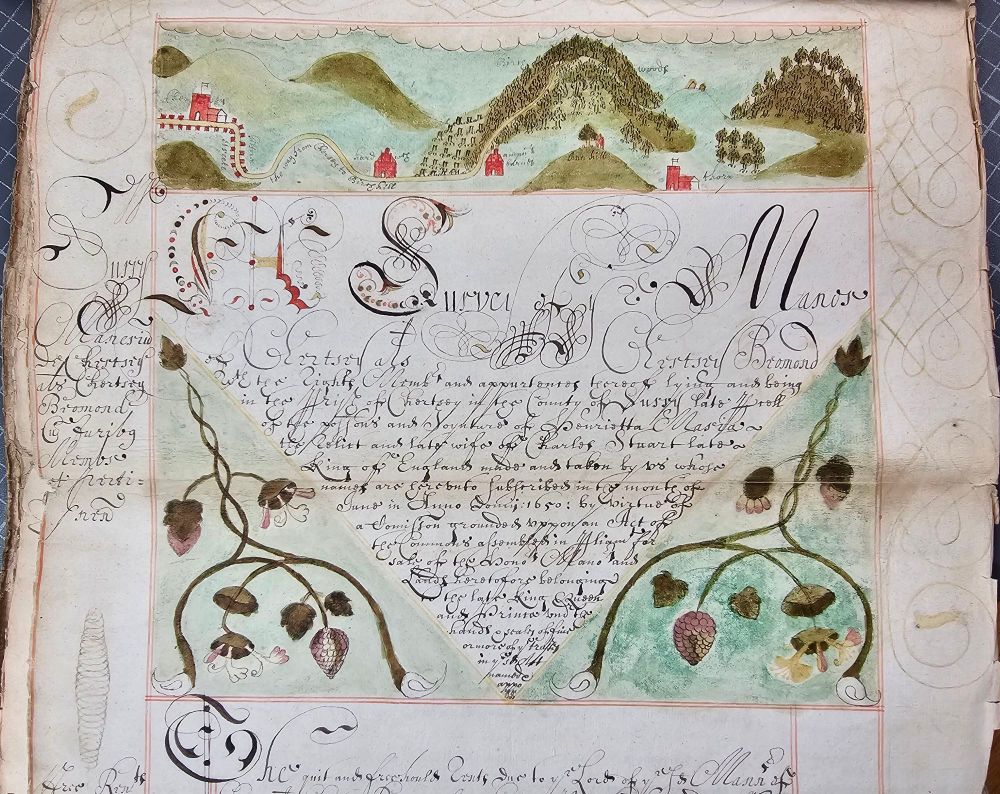 woods
Ann hill
Thorp
the way from Chertsey to
A Survey of ye Manor
of Chertsey als Chertsey Bromond
with the Rights Membrs and appurtences thereof lying and being
in the Prish of Chertsey in the County of Surry late Pcell
of the possons and Joynture of Henrietta Maria
the Relict and late wife of Charles Stuart late
King of England made and taken by vs whose
names are hereunto subscribed in the month of
June in Anno Domi: 1650: by virtue of
a Comisson grounded vppon an Act of
the Commons assembled in Pliamt for
sale of the Honors Mano and
Lands heretofore belonging
to the late King Queen
and Prince vnd the
hands & seales of five
or more of ye trustees
in ye sd Act
named
Surry
Manerium
de Chertsey
als Chertsey
Bromond
Cu Juribus
Membs
et ptin
The quit and freehould Rents due to ye Lord of ye sd Mannor of
Free Rents